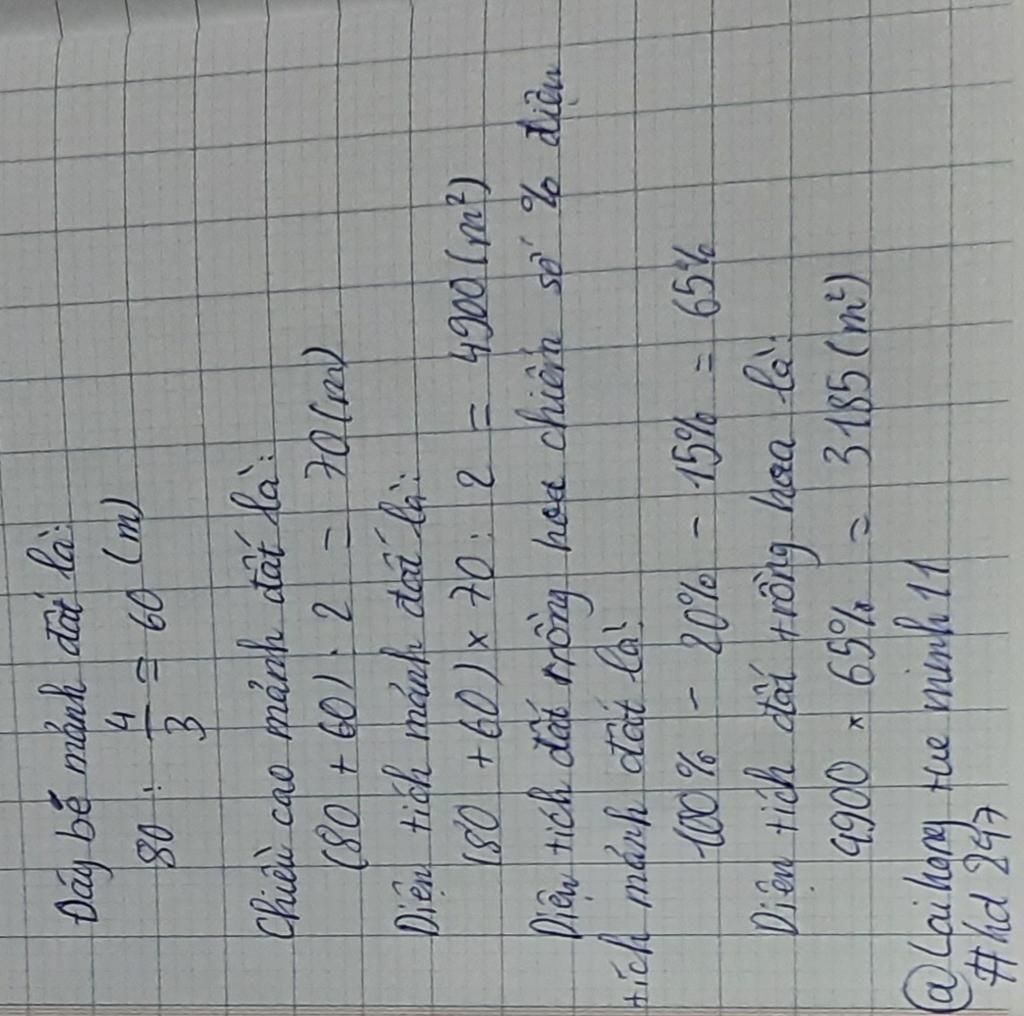 Đáy bé mảnh đất là:
80 : 4/3 = 60 (m)
Chiều cao mảnh đất là:
(80 + 60) : 2 = 70 (m)
Diện tích mảnh đất là:
(80 + 60) x 70 : 2 = 4900 (m²)
Diện tích đất trồng hoa chiếm số % diện
tích mảnh đất là:
100% - 20% - 15% = 65%
Diện tích đất trồng hoa là:
4900 x 65% = 3185 (m²)
@laihong tue minh 11
#hd 247